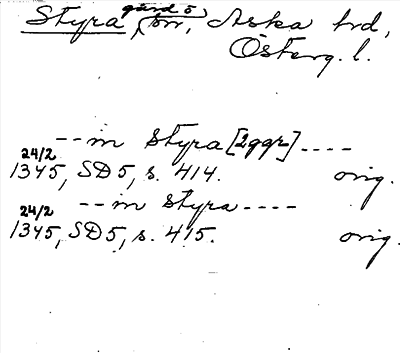 Styra gård o tn, Aska hrd,
Österg. l.
-- in Styra [2ggr] ----
24/2
1345, SD5, s. 414. orig.
-- in Styra ----
24/2
1345, SD5, s. 415. orig.